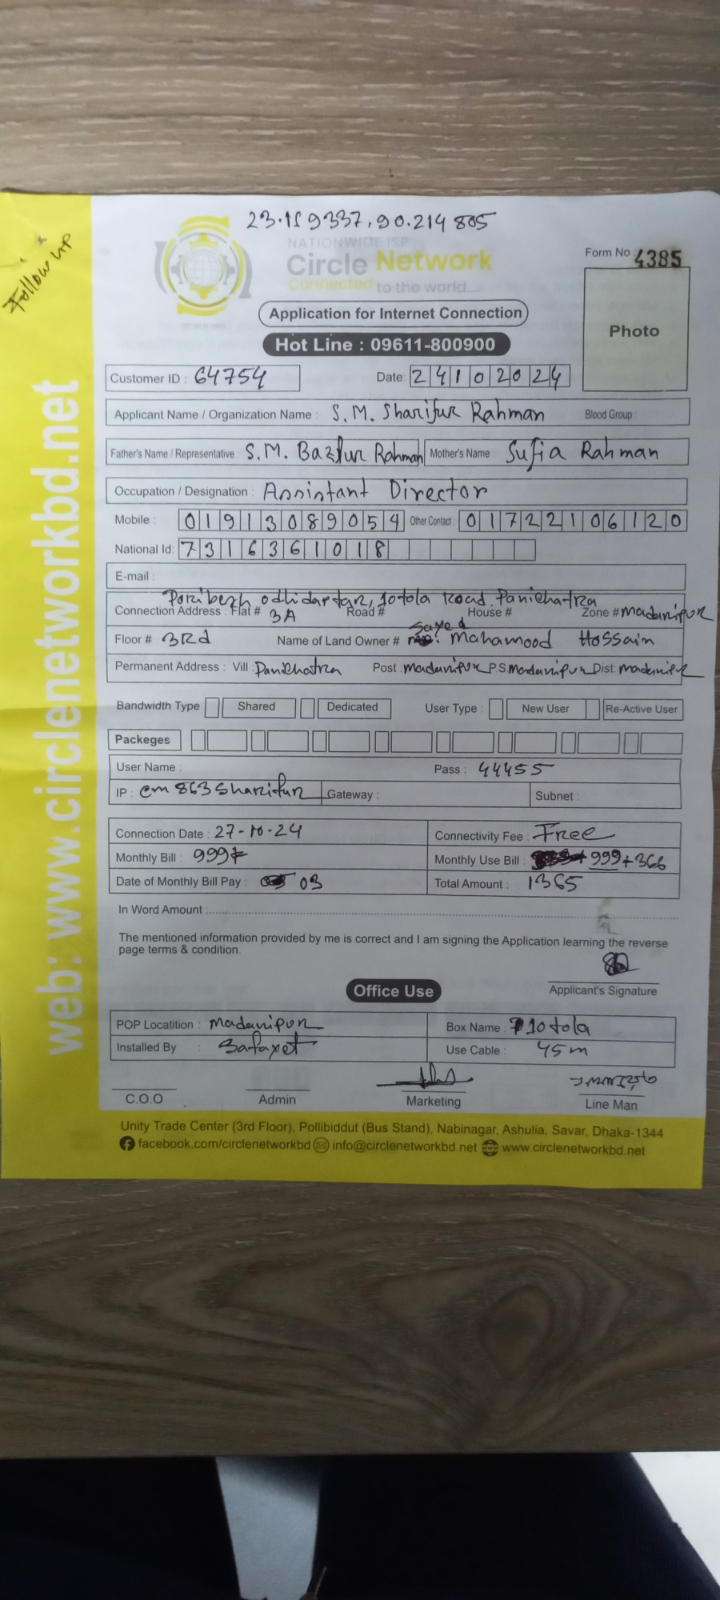 23.119337,90.214805
Follow up
NATIONWIDE ISP
Circle Network
Connected to the world....
Form No 4385
Application for Internet Connection
Photo
Hot Line : 09611-800900
Customer ID : 64754 Date: 24102024
Applicant Name / Organization Name : S.M. Sharifur Rahman Blood Group :
Father's Name / Representative S.M. Bazlur Rahman Mother's Name : Sufia Rahman
Occupation / Designation : Assistant Director
Mobile : 01913089054 Other Contact 01722106120
National Id: 7316361018
E-mail :
Poribesh odhidaptar, 10tola Road, Panichatra
Connection Address : Flat # 3A Road # House # Zone # madaripur
Floor # 3Rd Name of Land Owner # Sayed Mahamood Hossain
Permanent Address : Vill Panichatra Post : madaripur P.S madaripur Dist: madaripur
Bandwidth Type Shared Dedicated User Type : New User Re-Active User
Packeges
User Name : Pass : 44455
IP : cm863Sharifur Gateway : Subnet :
Connection Date : 27-10-24 Connectivity Fee : Free
Monthly Bill : 999 Monthly Use Bill : 999+366
Date of Monthly Bill Pay : 03 Total Amount : 1365
In Word Amount :
The mentioned information provided by me is correct and I am signing the Application learning the reverse
page terms & condition.
Applicant's Signature
Office Use
POP Locatition : madaripur Box Name : 10tola
Installed By : Safayet Use Cable : 45m
C.O.O Admin Marketing Line Man
Unity Trade Center (3rd Floor), Pollibiddut (Bus Stand), Nabinagar, Ashulia, Savar, Dhaka-1344
facebook.com/circlenetworkbd info@circlenetworkbd.net www.circlenetworkbd.net
web: www.circlenetworkbd.net